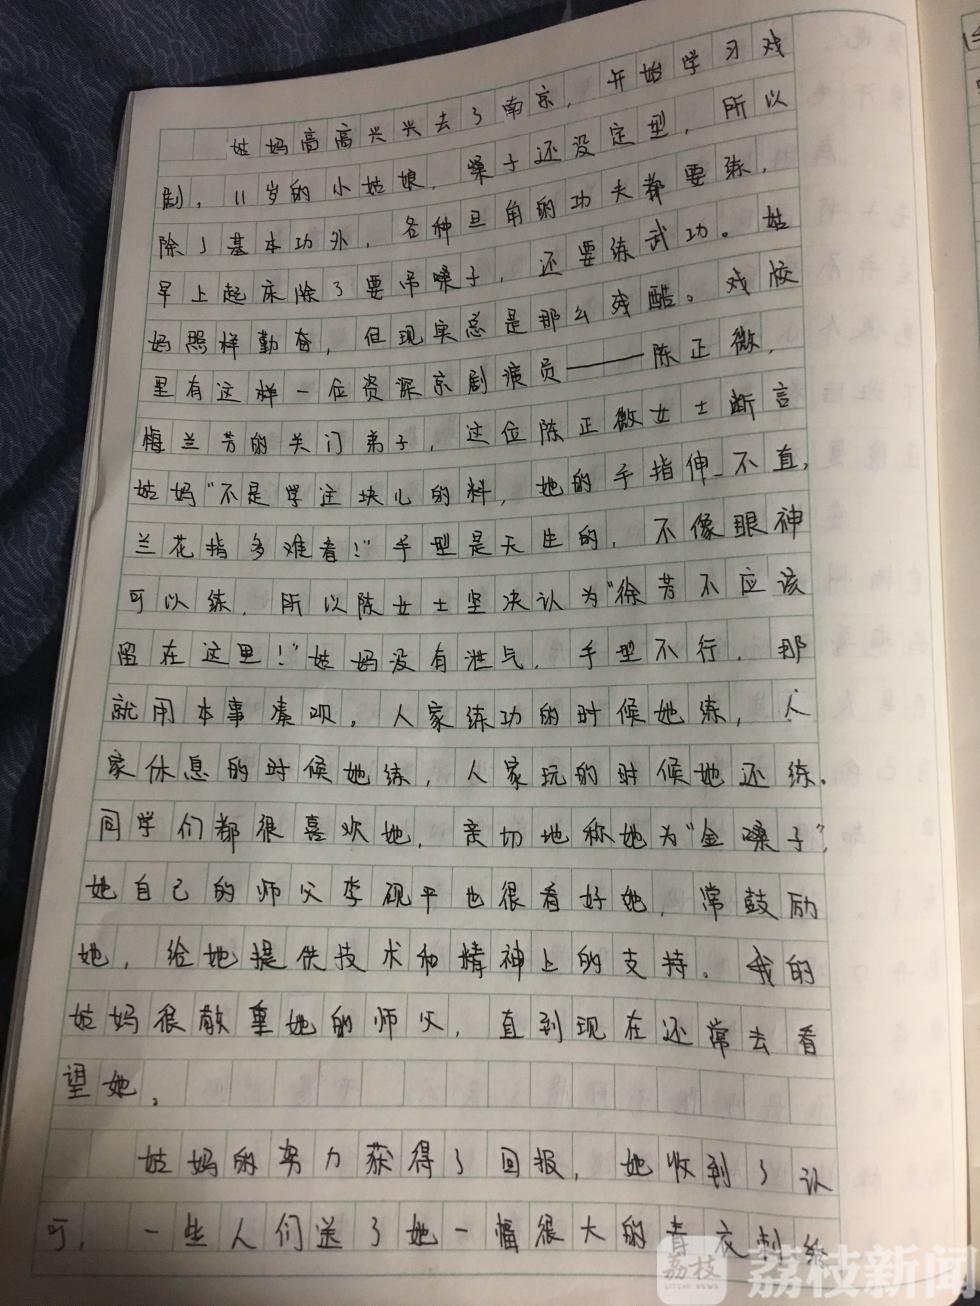 姑妈高高兴兴去了南京，开始学习戏
剧，11岁的小姑娘，嗓子还没定型，所以
除了基本功外，各种旦角的功夫都要练，
早上起床除了要吊嗓子，还要练武功。姑
妈照样勤奋，但现实总是那么残酷。戏校
里有这样一位资深京剧演员——陈正薇，
梅兰芳的关门弟子，这位陈正薇女士断言
姑妈“不是学这块儿的料，她的手指伸不直，
兰花指多难看！”手型是天生的，不像眼神
可以练，所以陈女士坚决认为“徐芳不应该
留在这里！”姑妈没有泄气，手型不行，那
就用本事凑呗，人家练功的时候她练，人
家休息的时候她练，人家玩的时候她还练。
同学们都很喜欢她，亲切地称她为“金嗓子”，
她自己的师父李砚平也很看好她，常鼓励
她，给她提供技术和精神上的支持。我的
姑妈很敬重她的师父，直到现在还常去看
望她。
姑妈的努力获得了回报，她收到了认
可，一些人们送了她一幅很大的青衣刺绣
荔枝
LITCHI NEWS
荔枝新闻